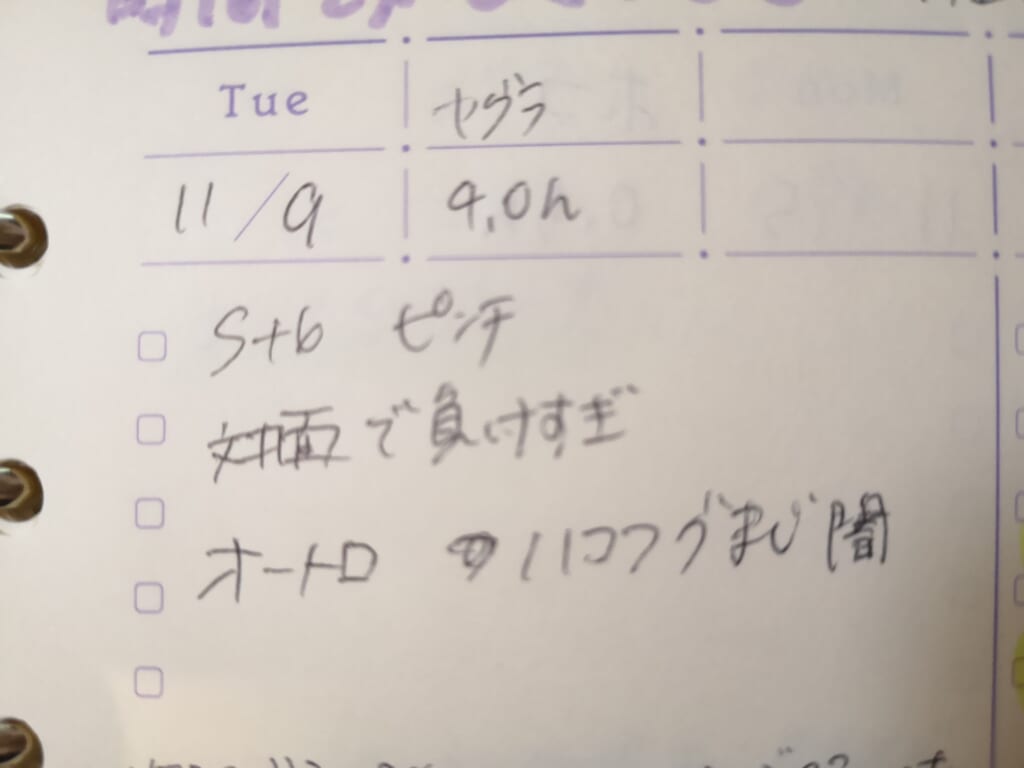 Tue ヤグラ
11/9 4.0h
S+6 ピンチ
対面で負けすぎ
オートロ ハコフグまじ闇